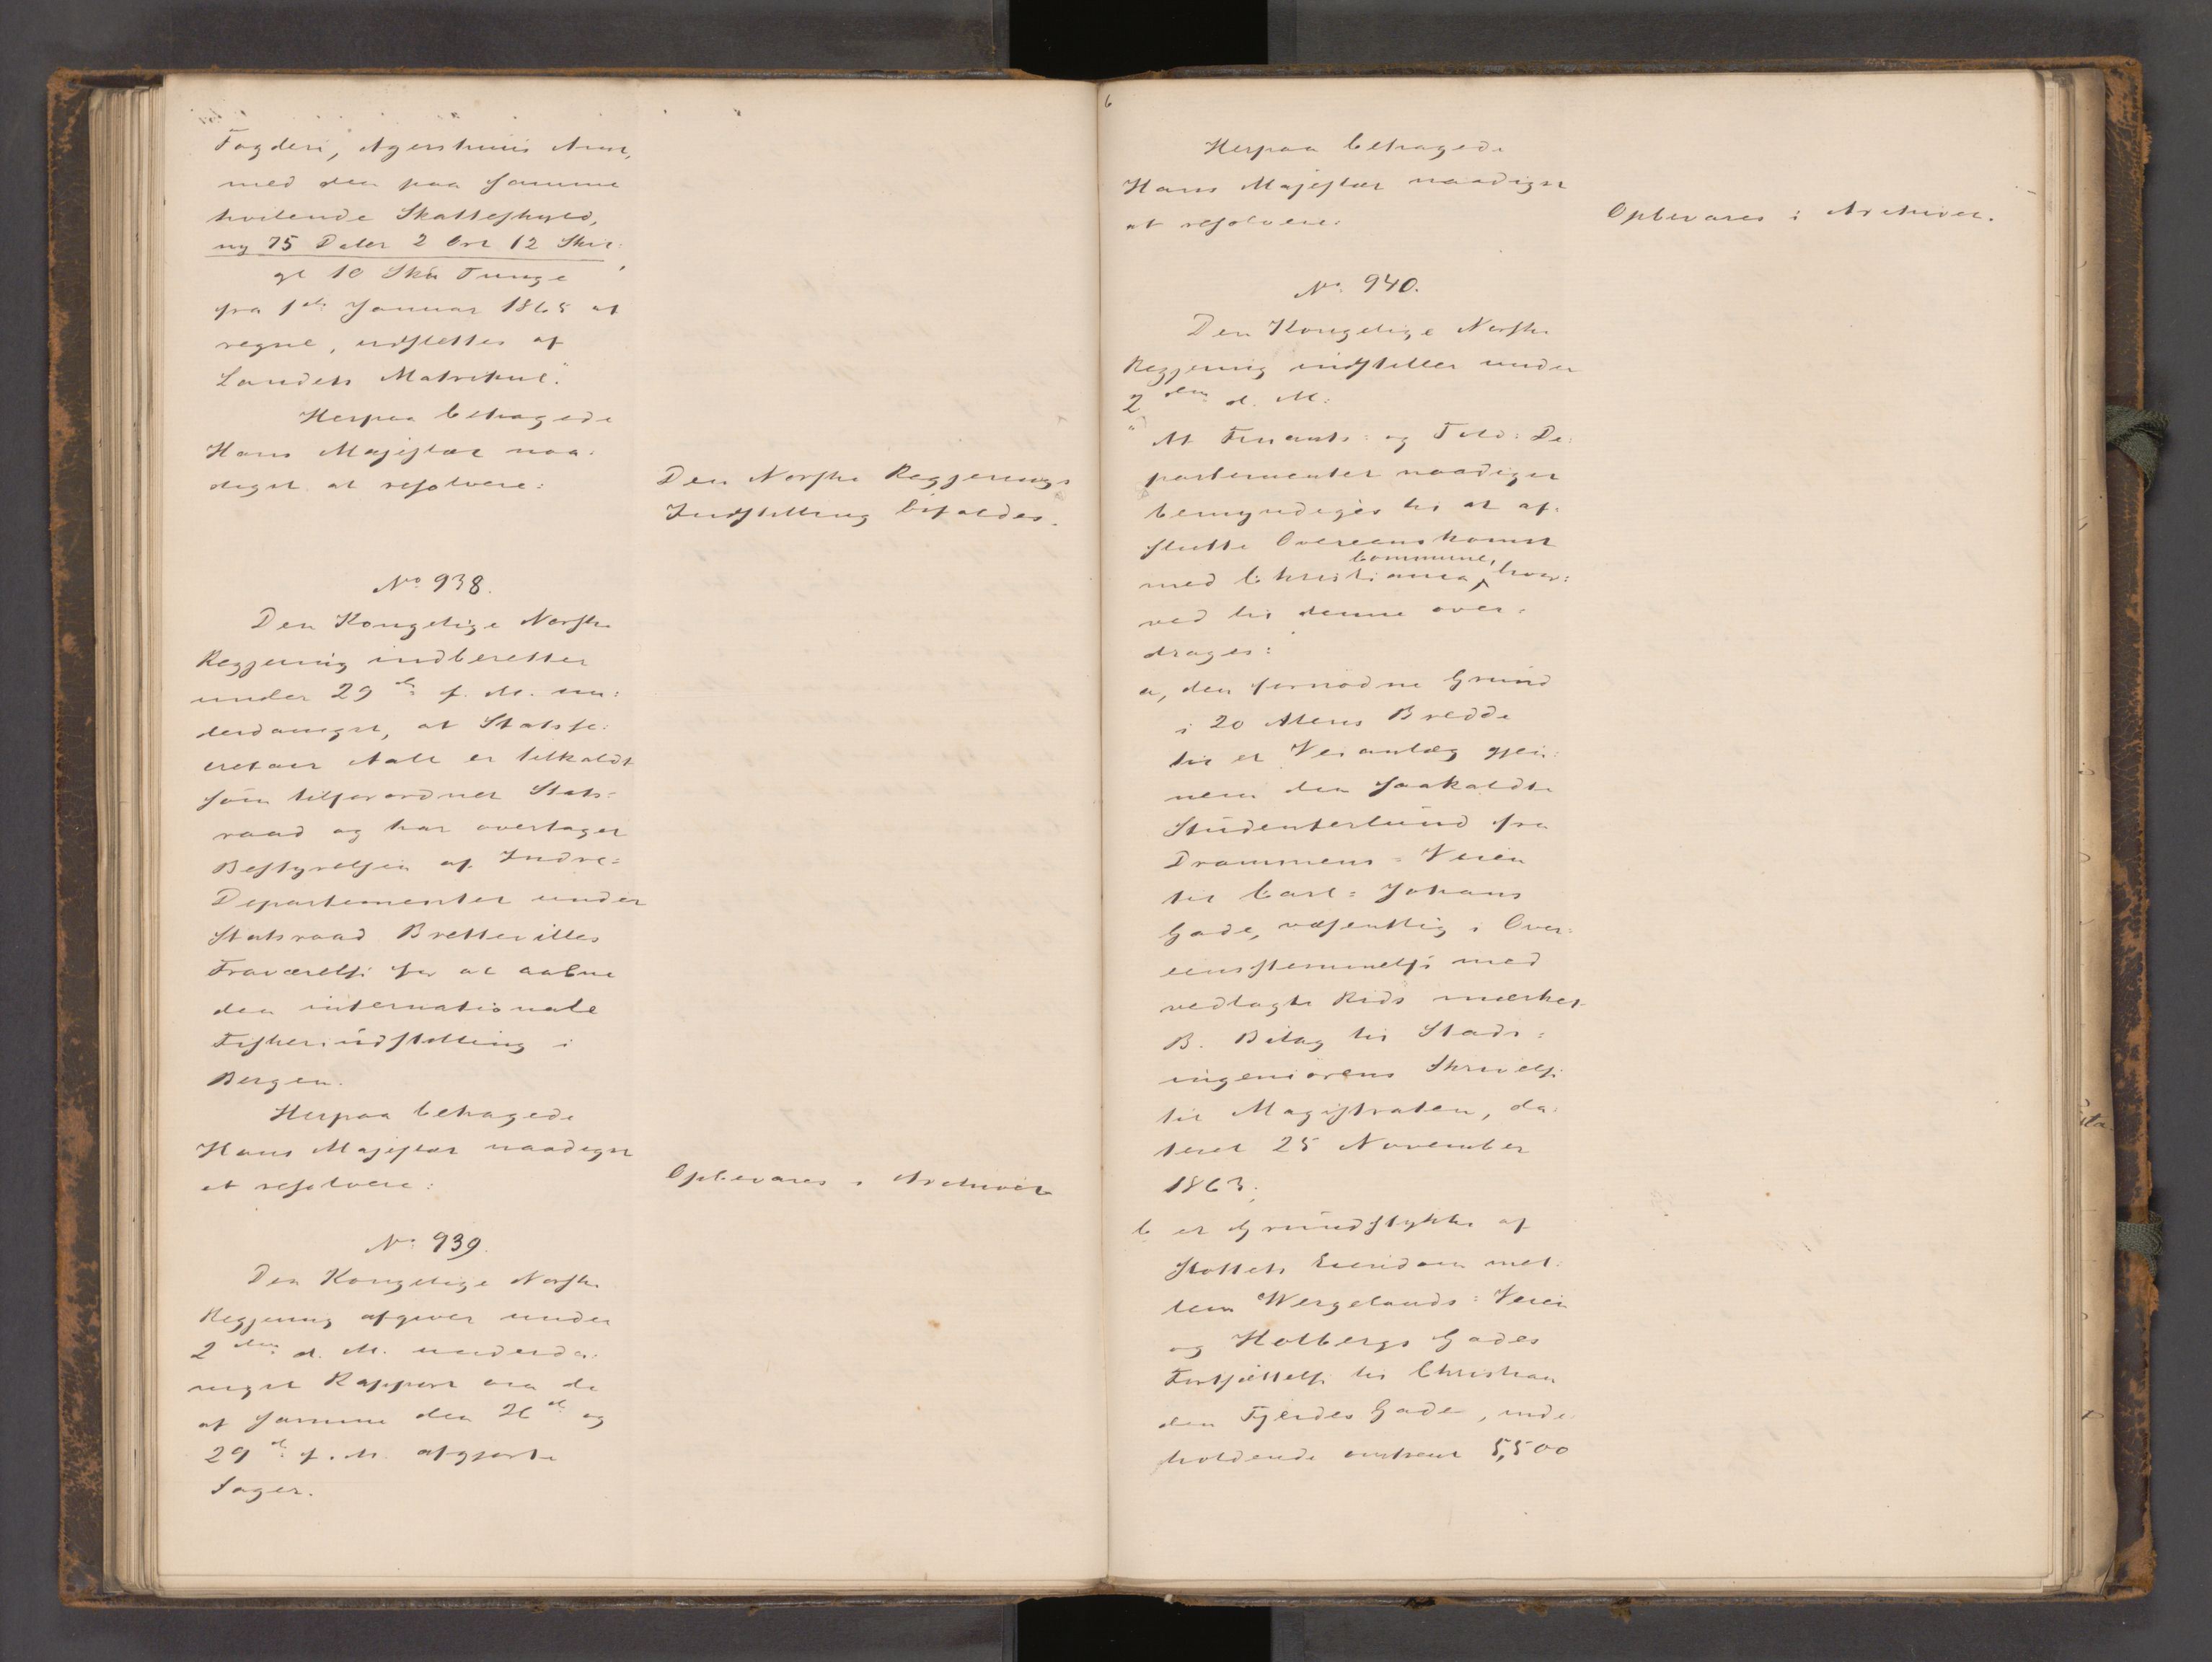 Fogderi, Agershuus Amt,
med den paa samme
hvilende Skatteskyld,
ny 75 Daler 2 Ort 12 Skil:
gl 10 Skil Tunge
fra 1ste Januar 1865 at
regne, udslettes af
Landets Matrikul."
Herpaa behagede
Hans Majestæt naa:
digst at resolvere:
Den Norske Regjerings
Indstilling bifaldes.
No 938.
Den Kongelige Norske
Regjering indberetter
under 29de f. M. un:
derdanigst, at Statsse:
cretair Aall er tilkaldt
som tilforordnet Stats-
raad og har overtaget
Bestyrelsen af Indre-
Departementet under
Statsraad Brettevilles
Fraværelse for at aabne
den internationale
Fiskeriudstilling i
Bergen.
Herpaa behagede
Hans Majestæt naadigst
at resolvere:
Opbevares i Archivet
No 939.
Den Kongelige Norske
Regjering afgiver under
2den d. M. underda:
nigst Rapport om de
af samme den 26de og
29de f. M. afgjorte
Sager.
6
Herpaa behagede
Hans Majestæt naadigst
at resolvere:
Opbevares i Archivet.
No 940.
Den Kongelige Norske
Regjering indstiller under
2den d. M:
"At Finants: og Told: De:
partementet naadigst
bemyndiges til at af:
slutte Overeenskomst
med Christiania Commune, hvor:
ved til denne over:
drages:
a, den fornødne Grund
i 20 Alens Bredde
til et Veianlæg gjen:
nem den saakaldte
Studenterlund fra
Drammens-Veien
til Carl-Johans
Gade, væsentlig i Over:
eensstemmelse med
vedlagte Rids mærket
B. Bilag til Stads:
ingeniørens Skrivelse
til Magistraten, da:
teret 25 November
1863;
b et Grundstykke af
Slottets Eiendom mel:
lem Wergelands-Veien
og Holbergs Gades
Fortsættelse til Christian
den Fjerdes Gade, inde
holdende omtrent 5,500